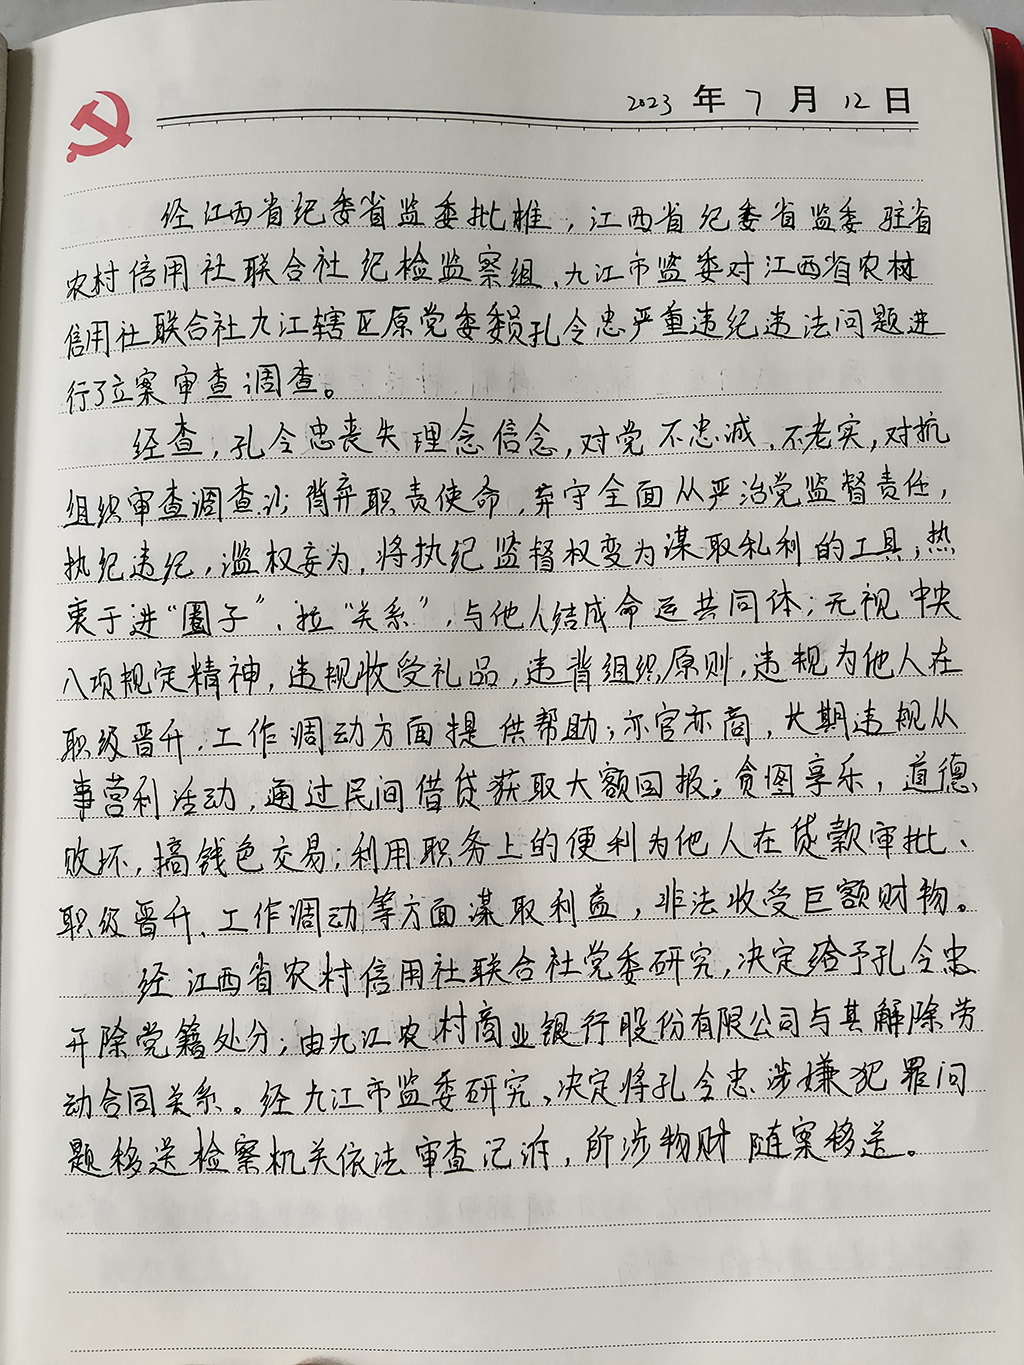 2023年7月12日
经江西省纪委省监委批准，江西省纪委省监委驻省
农村信用社联合社纪检监察组、九江市监委对江西省农村
信用社联合社九江辖区原党委委员孔令忠严重违纪违法问题进
行了立案审查调查。
经查，孔令忠丧失理念信念，对党不忠诚、不老实，对抗
组织审查调查；背弃职责使命，弃守全面从严治党监督责任，
执纪违纪，滥权妄为，将执纪监督权变为谋取私利的工具；热
衷于进“圈子”、拉“关系”，与他人结成命运共同体；无视中央
八项规定精神，违规收受礼品，违背组织原则，违规为他人在
职级晋升、工作调动方面提供帮助；亦官亦商，长期违规从
事营利活动，通过民间借贷获取大额回报；贪图享乐，道德
败坏，搞钱色交易；利用职务上的便利为他人在贷款审批、
职级晋升、工作调动等方面谋取利益，非法收受巨额财物。
经江西省农村信用社联合社党委研究，决定给予孔令忠
开除党籍处分；由九江农村商业银行股份有限公司与其解除劳
动合同关系。经九江市监委研究，决定将孔令忠涉嫌犯罪问
题移送检察机关依法审查记诉，所涉物财随案移送。